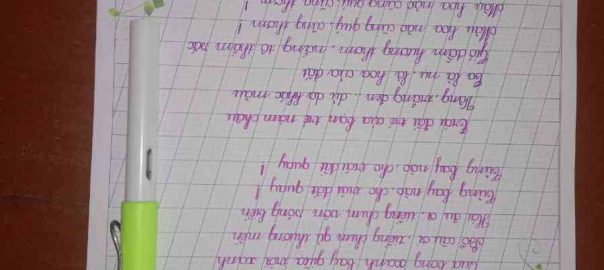 Quả bóng xanh bay giữa trời xanh
Bồ câu ơi, tiếng chim gù thương mến
Hải âu ơi, cánh chim vờn sóng biển
Cùng bay nào, cho trái đất quay !
Cùng bay nào, cho trái đất quay !
Trái đất trẻ của bạn trẻ năm châu
Vàng, trắng, đen... dù da khác màu
Ta là nụ, là hoa của đất
Gió đẫm hương thơm, nắng tô thắm sắc
Màu hoa nào cũng quý, cũng thơm !
Màu hoa nào cũng quý, cũng thơm !